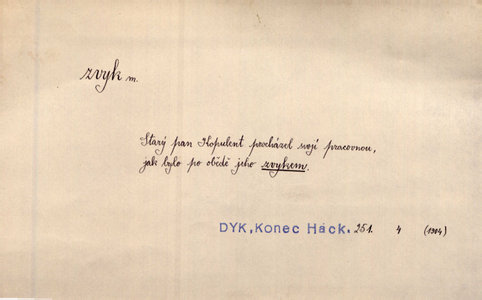 zvyk m.
Starý pan Kopulent procházel svojí pracovnou,
jak bylo po obědě jeho zvykem.
DYK, Konec Hack. 251. 4 (1904)